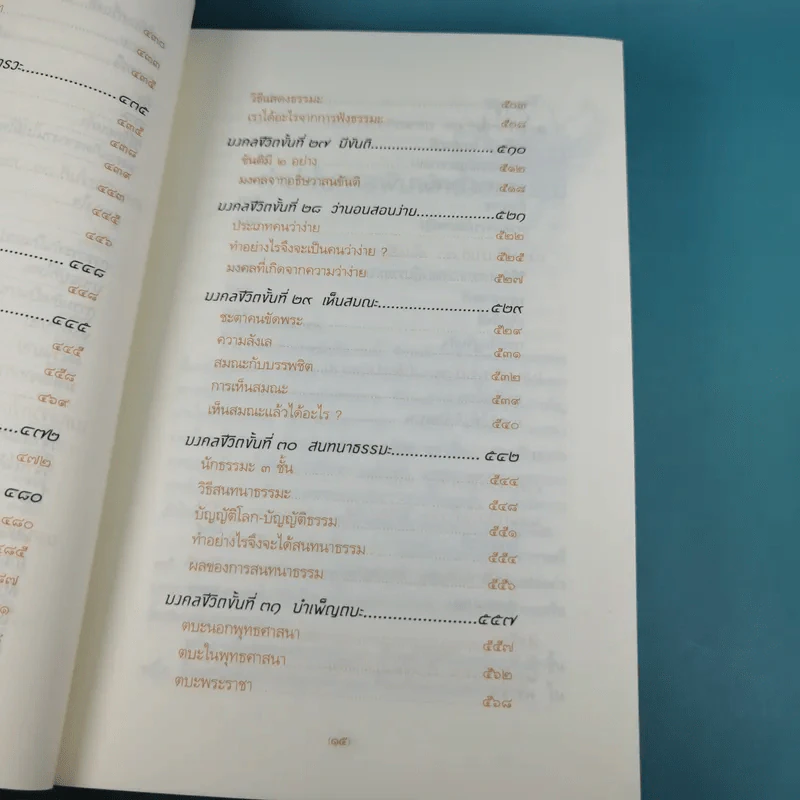 ๔๓๓
๔๓๕
ารวะ....................๔๓๕
๔๓๕
๔๓๘
๔๓๙
๔๔๓
๔๔๕
๔๔๖
๔๔๘
๔๔๘
๔๕๕
๔๕๕
๔๕๘
๔๖๙
๔๗๒
๔๗๒
๔๘๐
๔๘๐
๔๘๕
วิธีแสดงธรรมะ ๕๐๓
เราได้อะไรจากการฟังธรรมะ ๕๐๘
มงคลชีวิตขั้นที่ ๒๗ มีขันติ........................๕๑๐
ขันติมี ๒ อย่าง ๕๑๒
มงคลจากอธิษวาสนขันติ ๕๑๘
มงคลชีวิตขั้นที่ ๒๘ ว่านอนสอนง่าย...............๕๒๑
ประเภทคนว่าง่าย ๕๒๒
ทำอย่างไรจึงจะเป็นคนว่าง่าย ? ๕๒๕
มงคลที่เกิดจากความว่าง่าย ๕๒๗
มงคลชีวิตขั้นที่ ๒๙ เห็นสมณะ......................๕๒๙
ชะตาคนขัดพระ ๕๒๙
ความลังเล ๕๓๑
สมณะกับบรรพชิต ๕๓๒
การเห็นสมณะ ๕๓๙
เห็นสมณะแล้วได้อะไร ? ๕๔๐
มงคลชีวิตขั้นที่ ๓๐ สนทนาธรรมะ.................... ๕๔๒
นักธรรมะ ๓ ชั้น ๕๔๔
วิธีสนทนาธรรมะ ๕๔๘
บัญญัติโลก-บัญญัติธรรม ๕๕๑
ทำอย่างไรจึงจะได้สนทนาธรรม ๕๕๔
ผลของการสนทนาธรรม ๕๕๖
มงคลชีวิตขั้นที่ ๓๑ บำเพ็ญตบะ......................๕๕๗
ตบะนอกพุทธศาสนา ๕๕๗
ตบะในพุทธศาสนา ๕๖๒
ตบะพระราชา ๕๖๘
(๑๕)